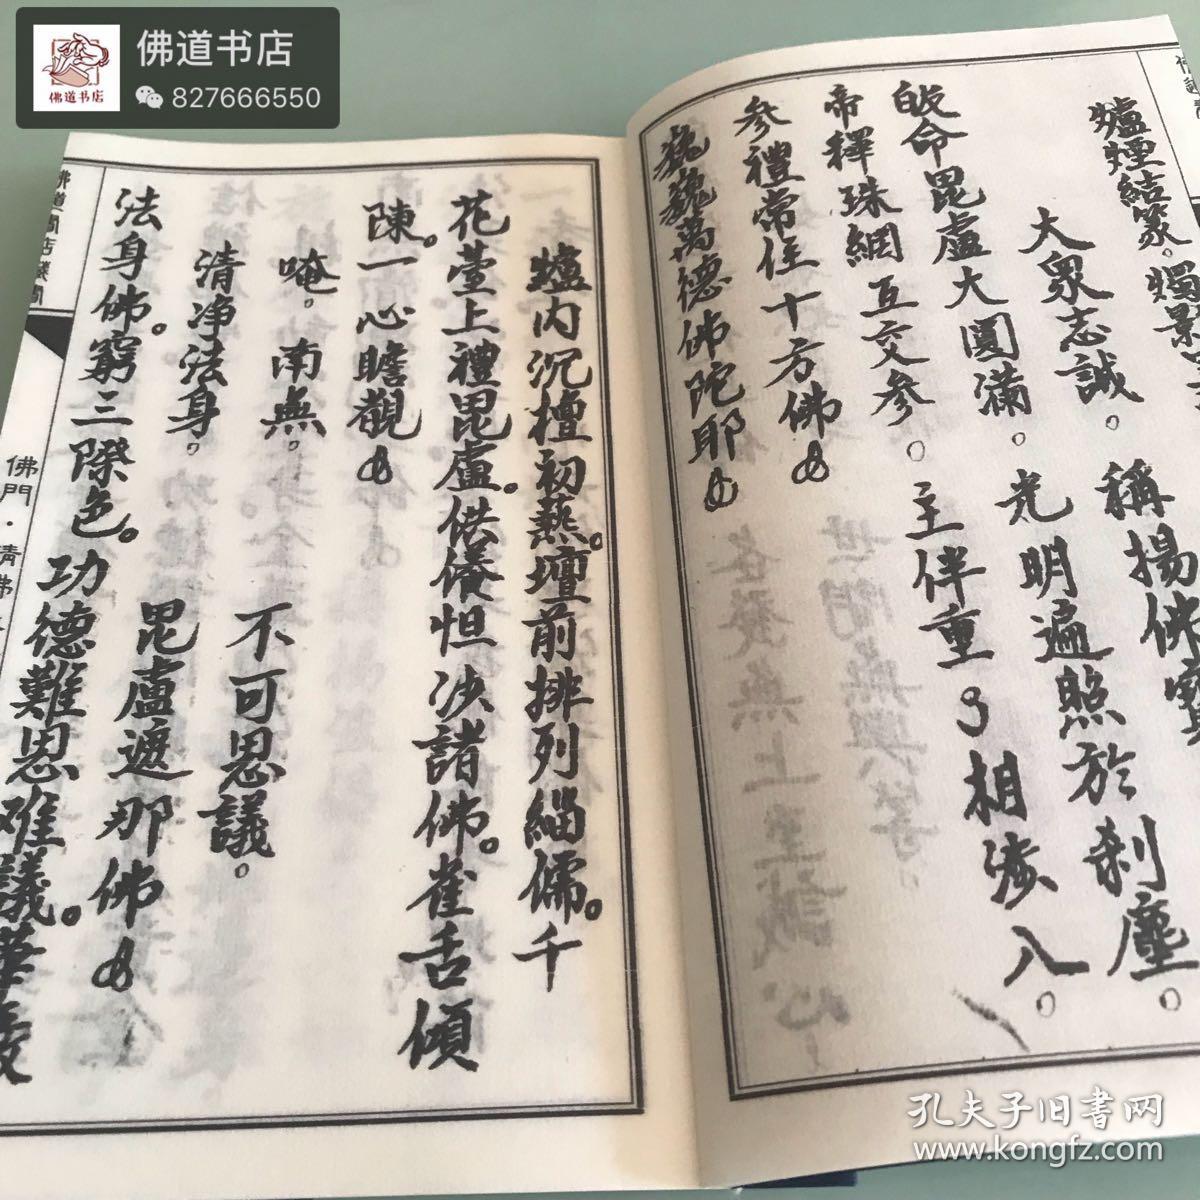 佛道书店
827666550
佛道书店
爐煙結篆。燭景
稱揚佛寶
大衆志誠。
皈命毘盧大圓滿。光明遍照於刹塵。
帝釋珠網互交參。主伴重重相涉入。
參禮常住十方佛
巍巍萬德佛陀耶
爐内沉檀初爇。壇前排列緇儒。千
花臺上禮毘盧。供養怛沙諸佛。雀舌傾
陳。一心瞻觀
唵。南無。不可思議。
清净法身。毘盧遮那佛
法身佛。窮三際色。功德難思难議。華嚴
佛門·請佛
孔夫子旧書网
www.kongfz.com